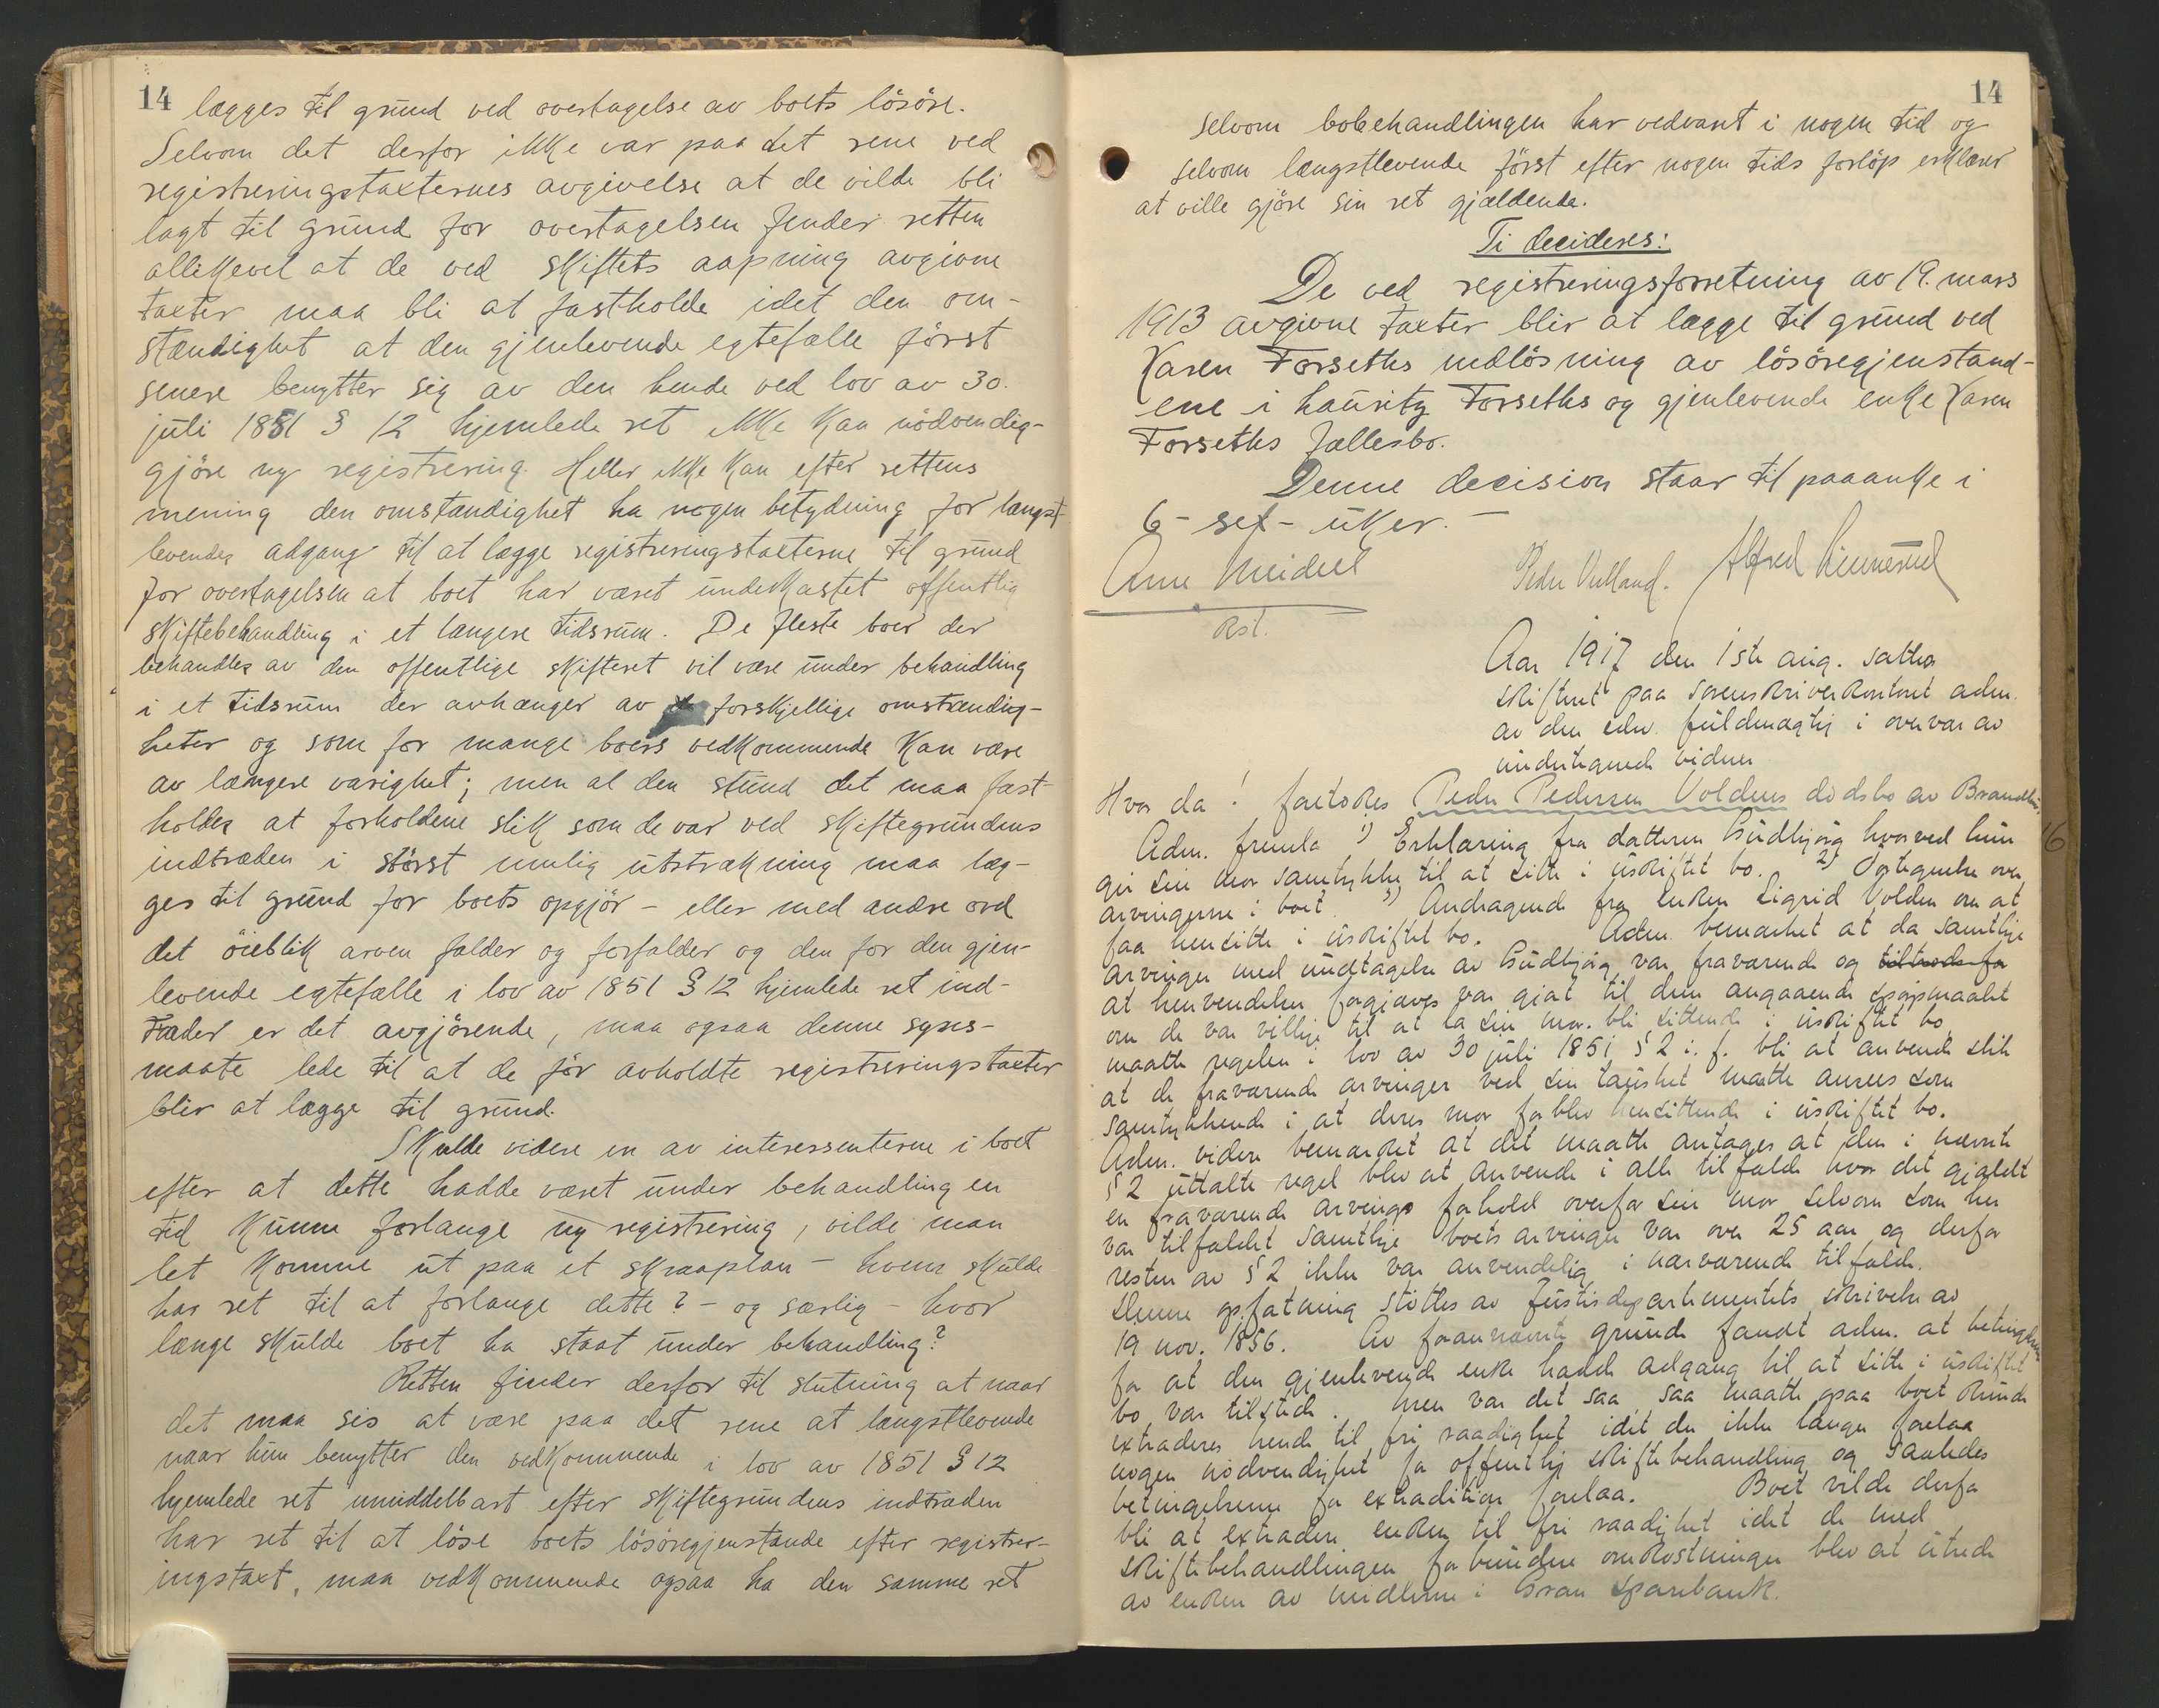 14
lægges til grund ved overtagelse av boets lösöre.
Selvom det derfor ikke var paa det rene ved
registreringstaxternes avgivelse at de vilde bli
lagt til grund for overtagelsen finder retten
allikevel at de ved skiftets aapning avgivne
taxter maa bli at fastholde idet den om-
stændighet at den gjenlevende egtefælle först
senere benytter sig av den hende ved lov av 30.
juli 1851 § 12 hjemlede ret ikke kan nödvendig-
gjöre ny registrering. Heller ikke kan efter rettens
mening den omstændighet ha nogen betydning for længst-
levendes adgang til at lægge registreringstaxterne til grund
for overtagelsen at boet har været underkastet offentlig
skiftebehandling i et længere tidsrum. De fleste boer der
behandles av den offentlige skifteret vil være under behandling
i et tidsrum der avhænger av forskjellige omstændig-
heter og som for mange boers vedkommende kan være
av længere varighet; men al den stund det maa fast-
holdes at forholdene slik som de var ved skiftegrundens
indtræden i störst mulig utstrækning maa læg-
ges til grund for boets opgjör - eller med andre ord
det öieblik arven falder og forfalder og den for den gjen-
levende egtefælle i lov av 1851 § 12 hjemlede ret ind-
træder er det avgjörende, maa ogsaa denne synes-
maate lede til at deför avholdte registreringstaxter
blir at lægge til grund.
Skulde videre en av interessenterne i boet
efter at dette hadde været under behandling en
tid kunne forlange ny registrering, vilde man
let komme ut paa et skraaplan - hvem skulde
har ret til at forlange dette? - og særlig - hvor
længe skulde boet ha staat under behandling?
Retten finder derfor til slutning at naar
det maa sies at være paa det rene at længstlevende
naar hun benytter den vedkommende i lov av 1851 § 12
hjemlede ret umiddelbart efter skiftegrundens indtræden
har ret til at löse boets lösöregjenstande efter registrer-
ingstaxt, maa vedkommende ogsaa ha den samme ret
14
selvom bobehandlingen har vedvaret i nogen tid og
selvom længstlevende först efter nogen tids forlöp erklærer
at ville gjöre sin ret gjældende.
Ti decideres:
De ved registreringsforretning av 19. mars
1913 avgivne taxter blir at lægge til grund ved
Karen Forseths indlösning av lösöregjenstand-
ene i Lauritz Forseths og gjenlevende enke Karen
Forseths fællesbo.
Denne decision staar til paaanke i
6 - sex - uker. -
Arne Meidell Alfred
Kst.
Aar 1917 den 1ste aug. sattes
skifteret paa sorenskriverkontoret adm.
av den edsv. fuldmægtig i overvær av
undertegnede vidner
Hvor da: foretokes Peder Pedersen Voldens dödsbo av Brandbu.
16
Adm. fremla 1) Erklæring fra datteren Gudbjörg hvorved hun
gir sin mor samtykke til at sitte i uskiftet bo. 2) Fortegnelse over
arvingerne i boet 3) Andragende fra enken Sigrid Volden om at
faa hensitte i uskiftet bo. Adm. bemærket at da samtlige
arvinger med undtagelse av Gudbjörg var fraværende og tiltrods for
at henvendelser forgjæves var gjort til dem angaaende spörsmaalet
om de var villige til at la sin mor bli sittende i uskiftet bo,
maatte regelen i lov av 30 juli 1851 § 2 i. f. bli at anvende slik
at de fraværende arvinger ved sin taushet maatte ansees som
samtykkende i at deres mor forblev hensittende i uskiftet bo.
Adm. videre bemærket at det maatte antages at den i nævnte
§ 2 uttalte regel blev at anvende i alle tilfælde hvor det gjaldt
en fraværende arvings forhold overfor sin mor selvom som her
var tilfældet samtlige boets arvinger var over 25 aar og derfor
resten av § 2 ikke var anvendelig i nærværende tilfælde.
Denne opfatning stöttes av Justisdepartementets skrivelse av
19 nov. 1856. Av foran nævnte grunde fandt adm. at betingelserne
for at den gjenlevende enke hadde adgang til at sitte i uskiftet
bo var tilstede. Men var det saa, saa maatte ogsaa boet kunde
extraderes hende til fri raadighet idet der ikke længer forelaa
nogen nödvendighet for offentlig skiftebehandling og saaledes
betingelserne for extradition forelaa. Boet vilde derfor
bli at extradere enken til fri raadighet idet de med
skiftebehandlingen forbundne omkostninger blev at utrede
av enken av midlerne i Gran Sparebank.